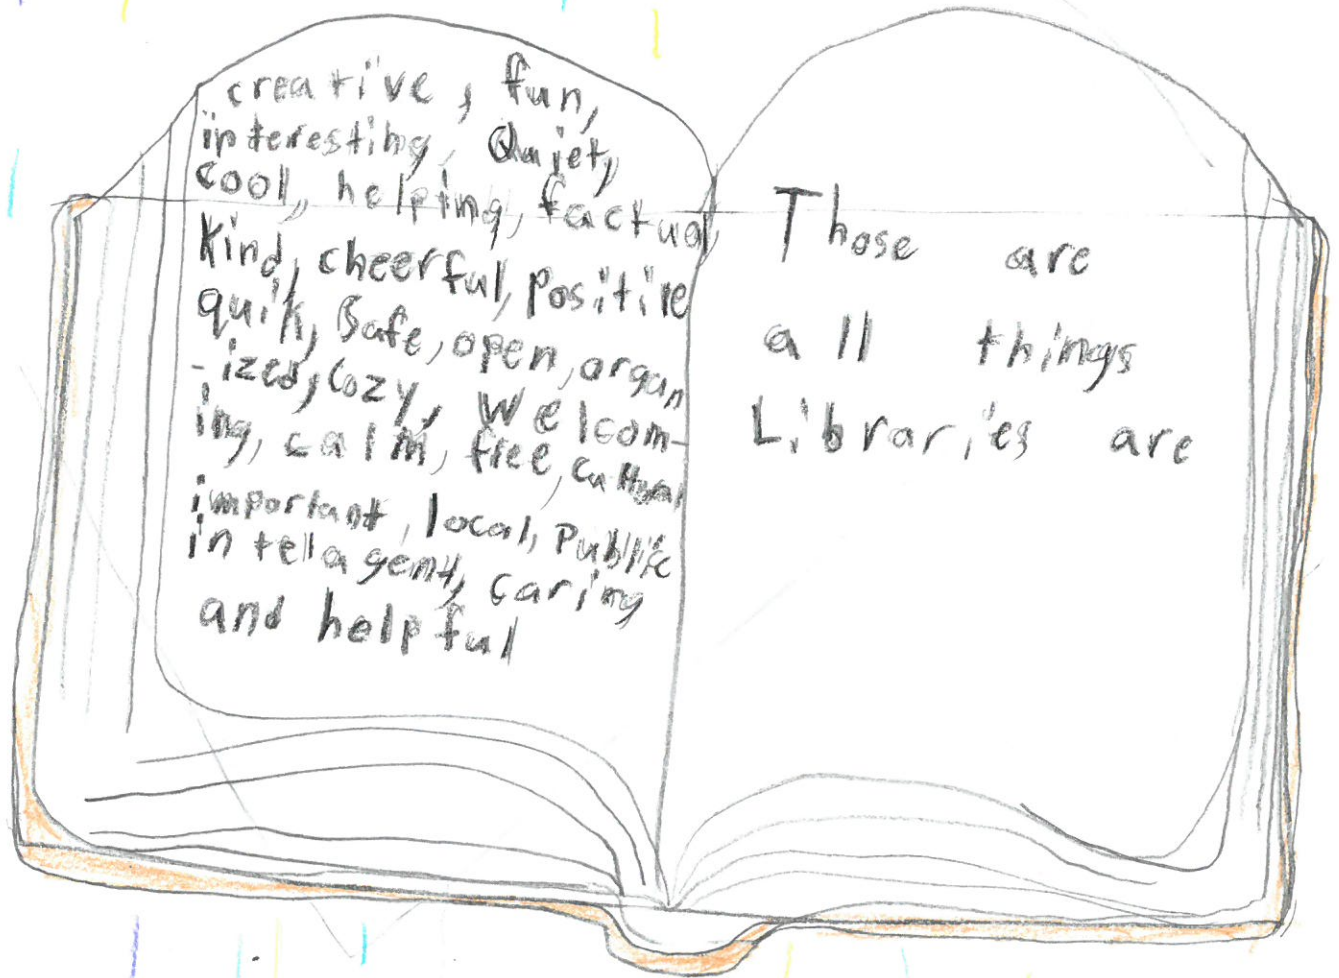 creative, fun,
interesting, Quiet,
cool, helping, factual,
kind, cheerful, positive
quik, Safe, open, organ
-ized, cozy, Welcom-
ing, calm, free, cultural
important, local, Public
intelagent, caring
and helpful
Those are
all things
Libraries are